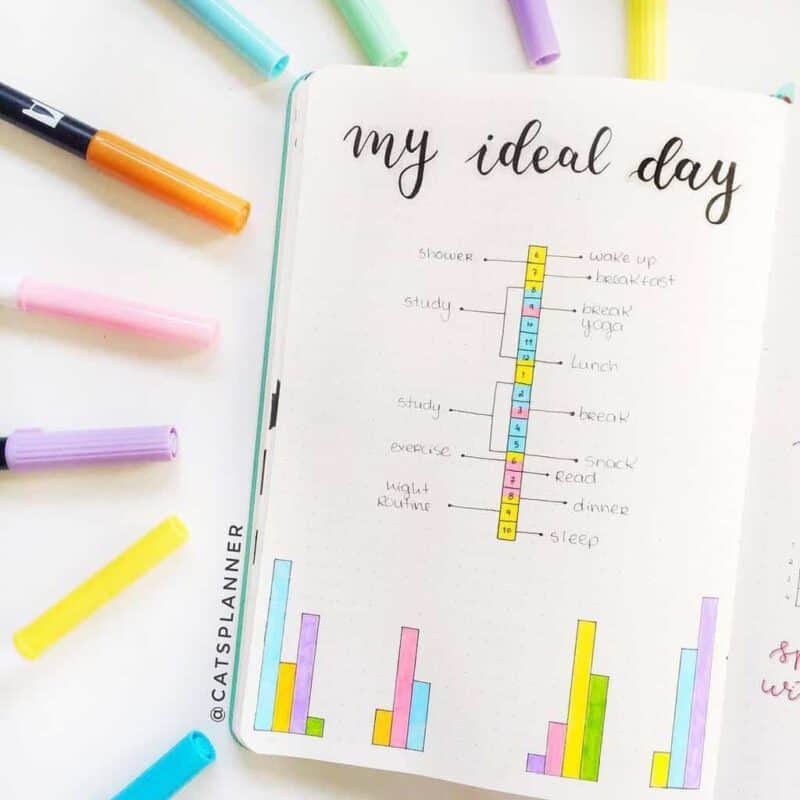 my ideal day
shower
6
wake up
7
breakfast
8
study
9
break
yoga
10
11
12
Lunch
1
2
study
3
break
4
5
exercise
6
snack
7
Read
night
routine
8
dinner
9
10
sleep
@CATSPLANNER